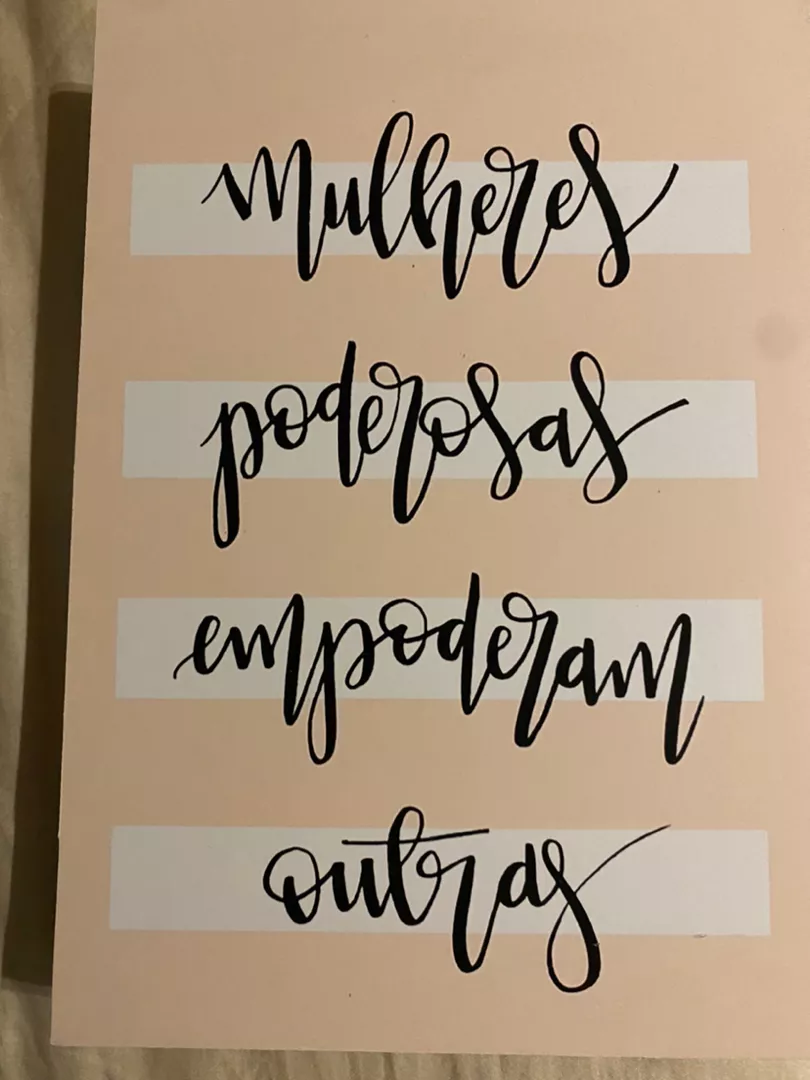 mulheres
poderosas
empoderam
outras